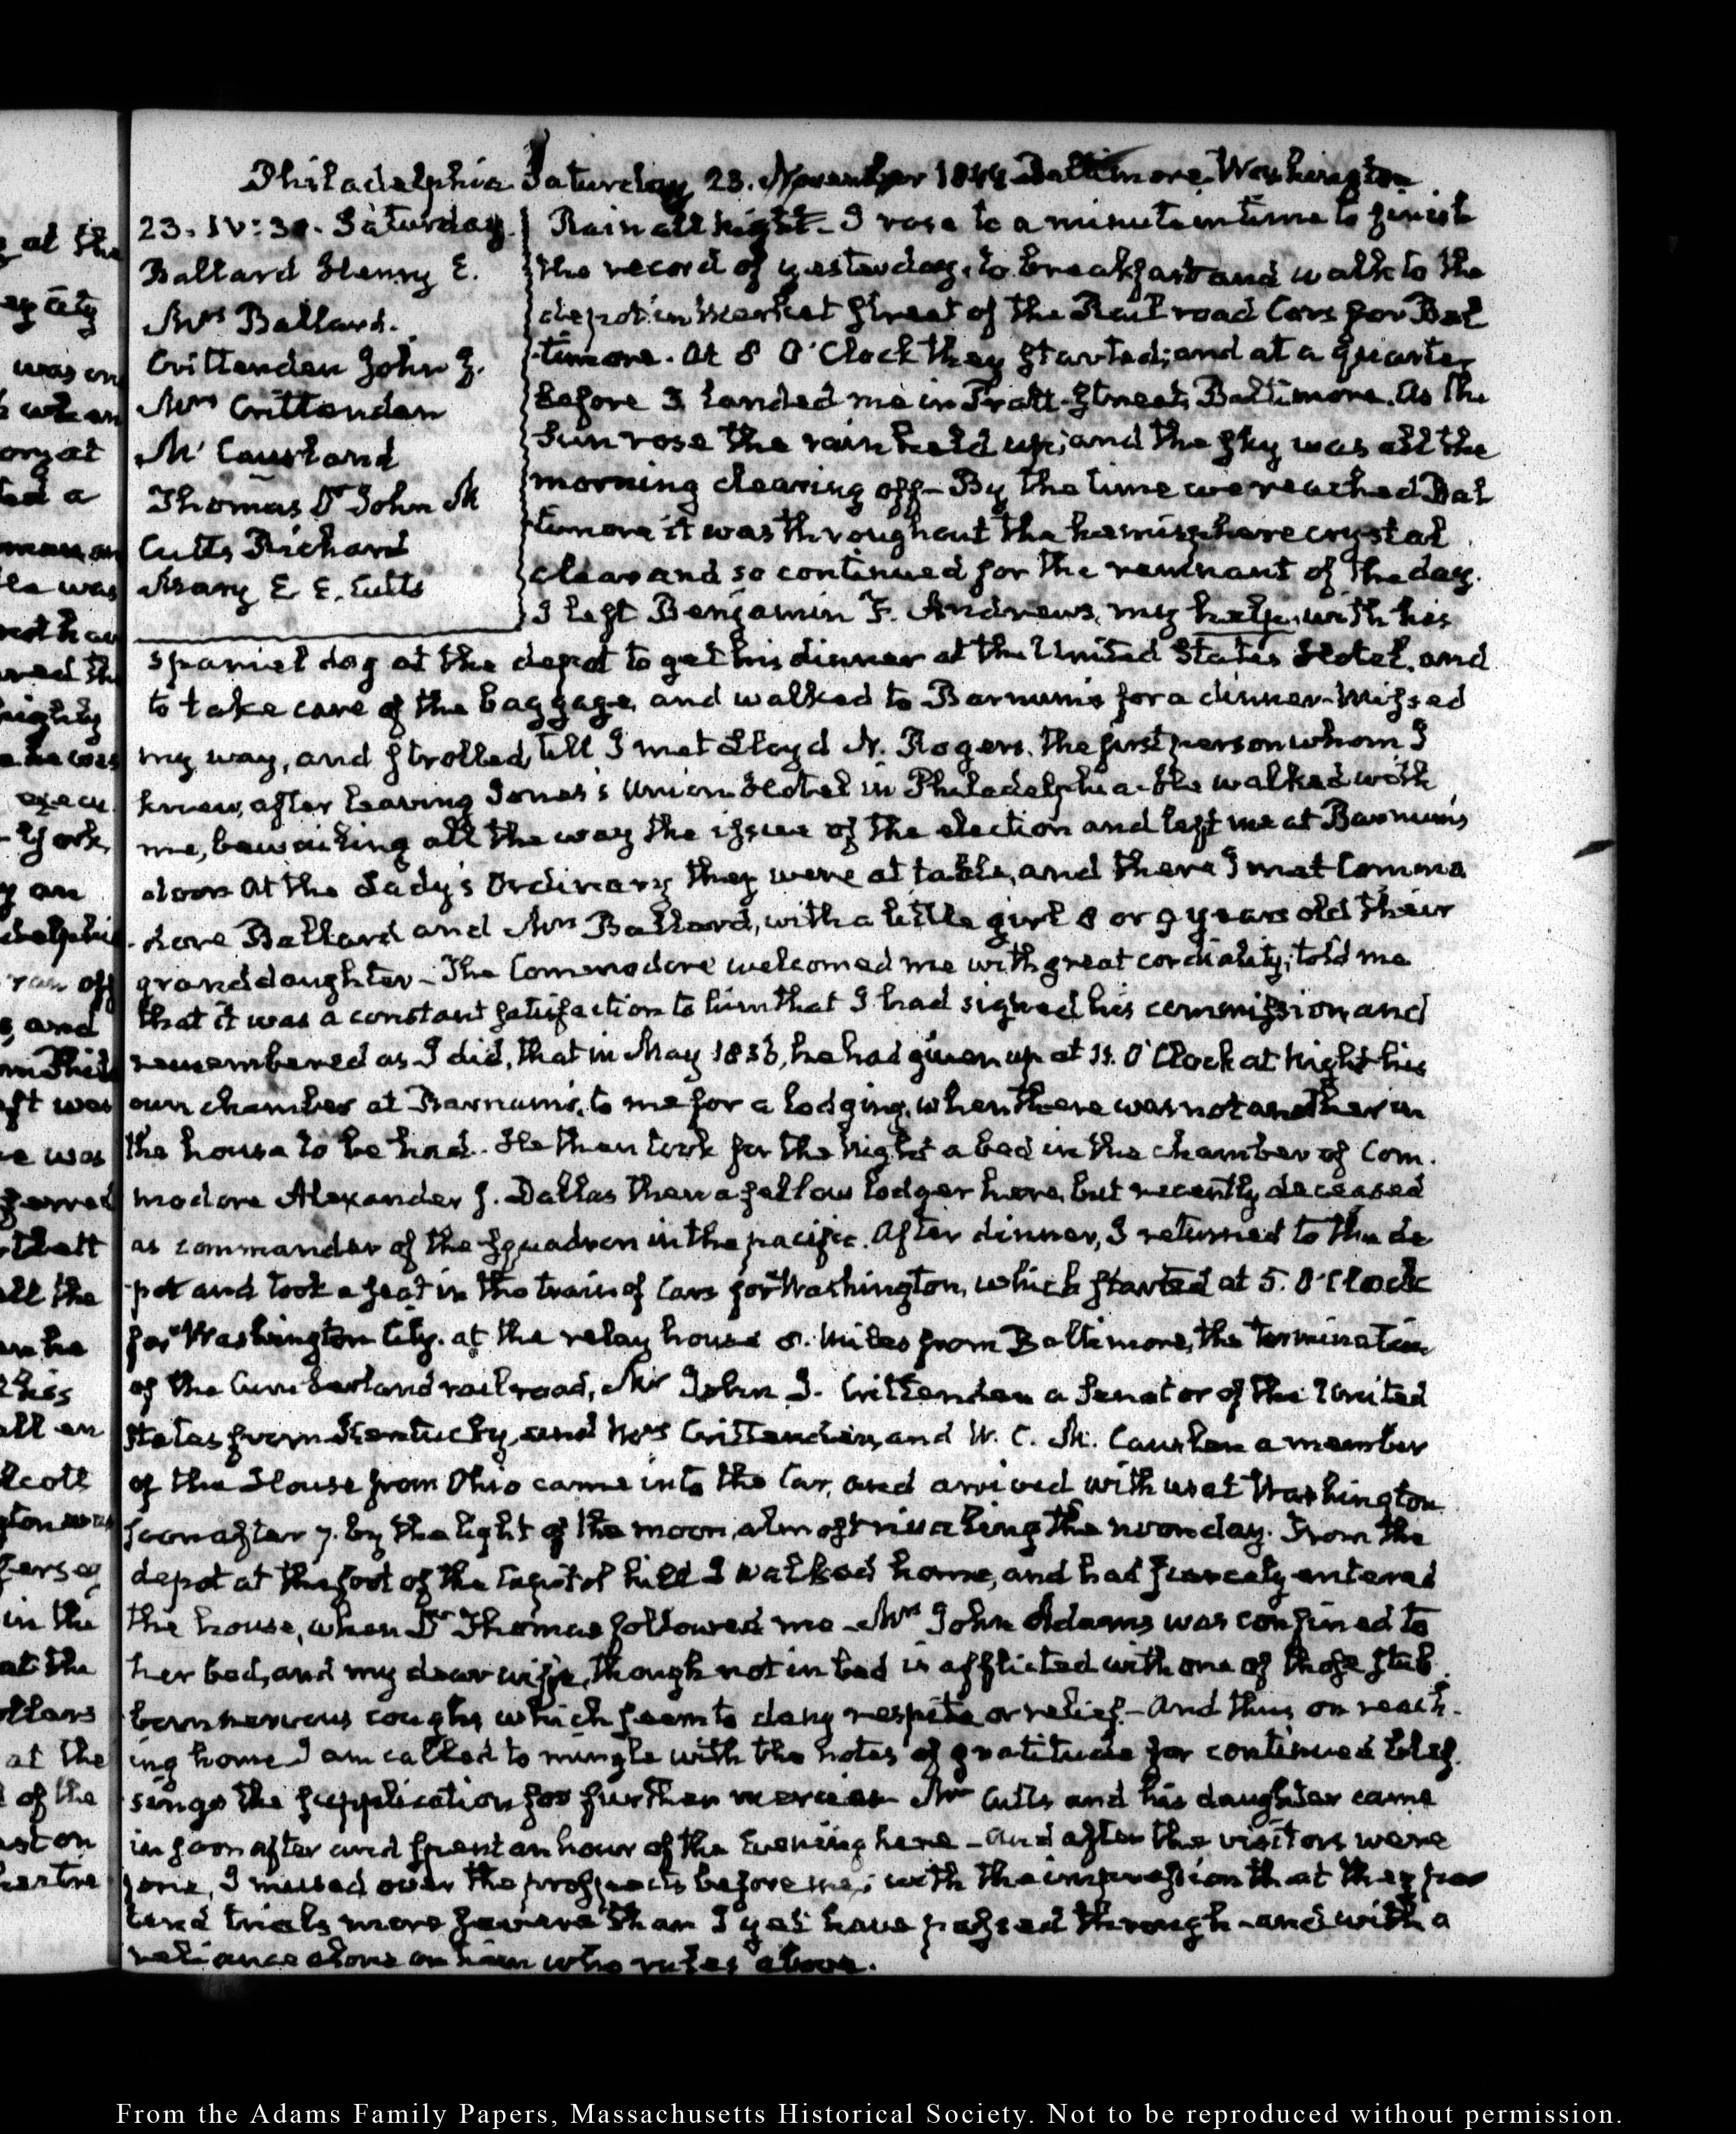 Philadelphia Saturday 23. November 1844 Baltimore Washington
23. IV:30. Saturday.
Ballard Henry E.
Mrs Ballard.
Crittenden John J.
Mrs Crittenden
McCausland
Thomas Dr John M
Cutts Richard
Mary E. E. Cutts
Rain all night. I rose to a minute in time to finish
the record of yesterday, to breakfast and walk to the
depot in Market Street of the Rail road Cars for Bal
timore. At 8 O'Clock they started; and at a quarter
before 3 landed me in Pratt-Street, Baltimore. As the
Sun rose the rain held up, and the sky was all the
morning clearing off—By the time we reached Bal
timore it was throughout the hemisphere crystal
clear and so continued for the remnant of the day.
I left Benjamin F. Andrews, my help, with his
spaniel dog at the depot to get his dinner at the United States Hotel, and
to take care of the baggage, and walked to Barnum's for a dinner—Missed
my way, and strolled, till I met Lloyd N. Rogers, the first person whom I
knew, after leaving Jones's Union Hotel in Philadelphia—He walked with
me, bewailing all the way the issue of the election and left me at Barnum's
door At the Lady's Ordinary they were at table, and there I met Commo
dore Ballard and Mrs Ballard, with a little girl 8 or 9 years old their
granddaughter—The Commodore welcomed me with great cordiality; told me
that it was a constant satisfaction to him that I had signed his commission, and
remembered as I did, that in May 1836, he had given up at 11. O'Clock at Night his
own chamber at Barnum's, to me for a lodging, when there was not another in
the house to be had. He then took for the night a bed in the chamber of Com.
modore Alexander J. Dallas then a fellow lodger here, but recently deceased
as commander of the squadron in the pacific. After dinner, I returned to the de
pot and took a seat in the train of Cars for Washington, which started at 5. O'Clock
for Washington City. at the relay house 8. Miles from Baltimore, the termination
of the Cumberland railroad, Mr John J. Crittenden a Senator of the United
States from Kentucky, and Mrs Crittenden, and W. C. McCauslen a member
of the House from Ohio came into the Car, and arrived with us at Washington
soon after 7. by the light of the moon, almost rivalling the noon day. From the
depot at the foot of the Capitol hill I walked home, and had scarcely entered
the house, when Dr Thomas followed me—Mrs John Adams was confined to
her bed, and my dear wife, though not in bed is afflicted with one of those stub
born nervous coughs which seem to deny respite or relief—And thus on reach-
ing home I am called to mingle with the notes of gratitude for continued bles
sings the supplication for further mercies—Mr Cutts and his daughter came
in soon after and spent an hour of the Evening here—And after the visitors were
gone, I mused over the prospects before me; with the impression that they por
tend trials more severe than I yet have passed through—and with a
reliance alone on him who rules above.
From the Adams Family Papers, Massachusetts Historical Society. Not to be reproduced without permission.